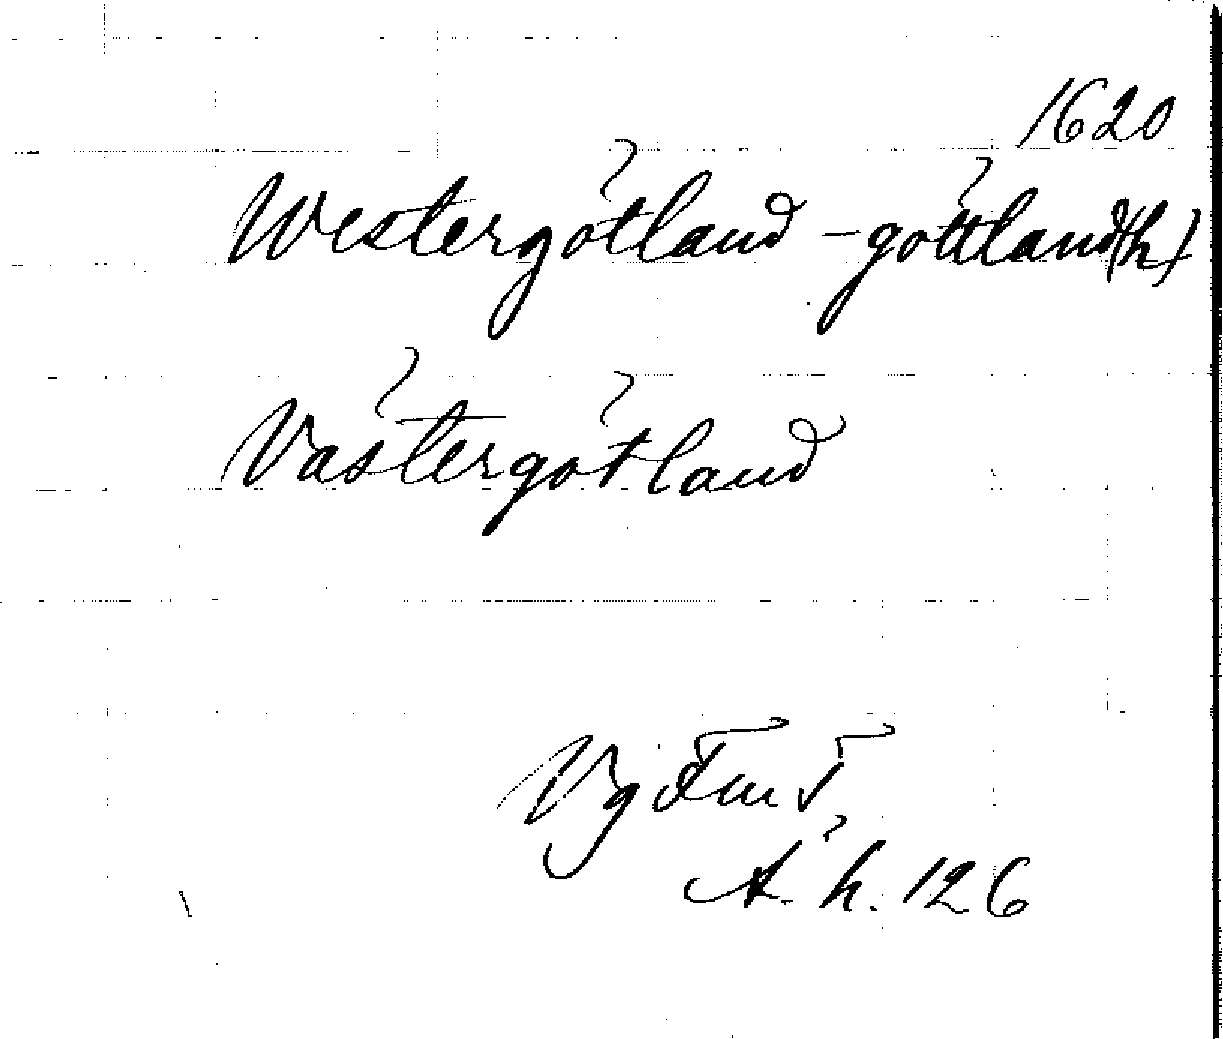 1620
Westergötland -göttland (h)
Västergötland
Vg Fmt
A. h. 126